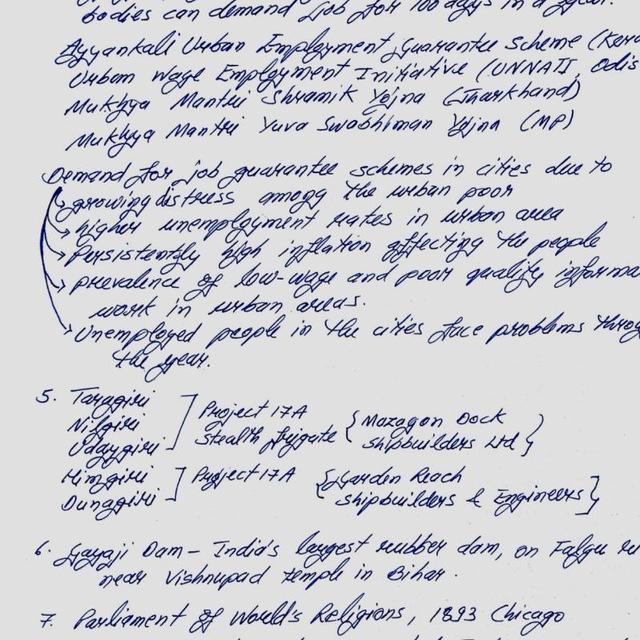 bodies can demand job for 100 days in a year.
Ayyankali Urban Employment Guarantee Scheme (Kera
Urban Wage Employment Initiative (UNNATI, Odis
Mukhya Mantri Shramik Yojna (Jharkhand)
Mukhya Mantri Yuva Swabhiman Yojna (MP)
Demand for job guarantee schemes in cities due to
growing distress among the urban poor
higher unemployment rates in urban area
Persistently high inflation affecting the people
prevalence of low-wage and poor quality informa
work in urban areas.
Unemployed people in the cities face problems throu
the year.
5. Taragiri
Nilgiri
Udaygiri
Project 17A
Stealth frigate
{Mazagon Dock
Shipbuilders Ltd}
Himgiri
Dunagiri
Project 17A
{Garden Reach
Shipbuilders & Engineers}
6. Gayaji Dam - India's largest rubber dam, on Falgu
near Vishnupad temple in Bihar.
7. Parliament of World's Religions, 1893 Chicago